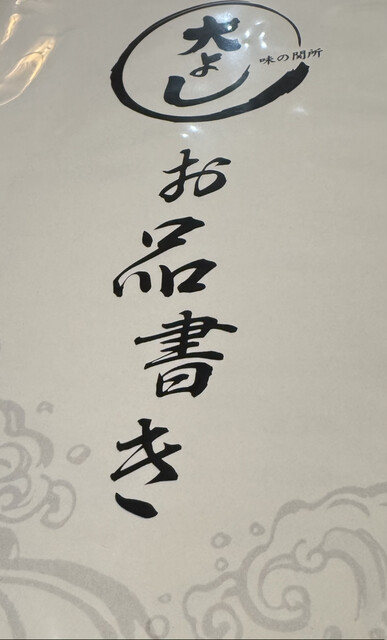 大よし
味の関所
お品書き